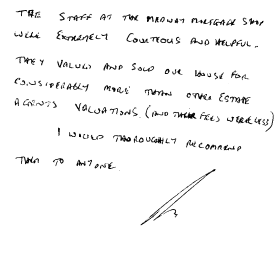 THE STAFF AT THE MEDWAY MORTGAGE SHOP
WERE EXTREMELY COURTEOUS AND HELPFUL.
THEY VALUED AND SOLD OUR HOUSE FOR
CONSIDERABLY MORE THAN OTHER ESTATE
AGENTS VALUATIONS. (AND THEIR FEES WERE LESS)
I WOULD THOROUGHLY RECOMMEND
THEM TO ANYONE.